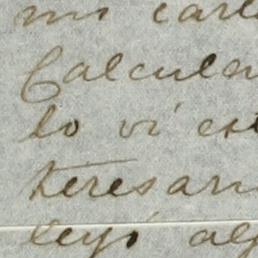 mi carl
Calcular
lo vi est
teresan
leyó alg